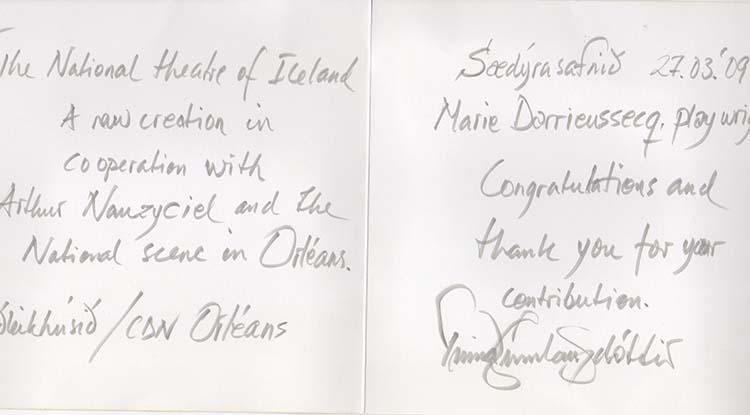 The National theatre of Iceland
A new creation in
cooperation with
Arthur Nauzyciel and the
National scene in Orléans.
/ CDN Orléans
Sædýrasafnið 27.03.'09
Marie Dorrieussecq, playwri
Congratulations and
thank you for your
contribution.